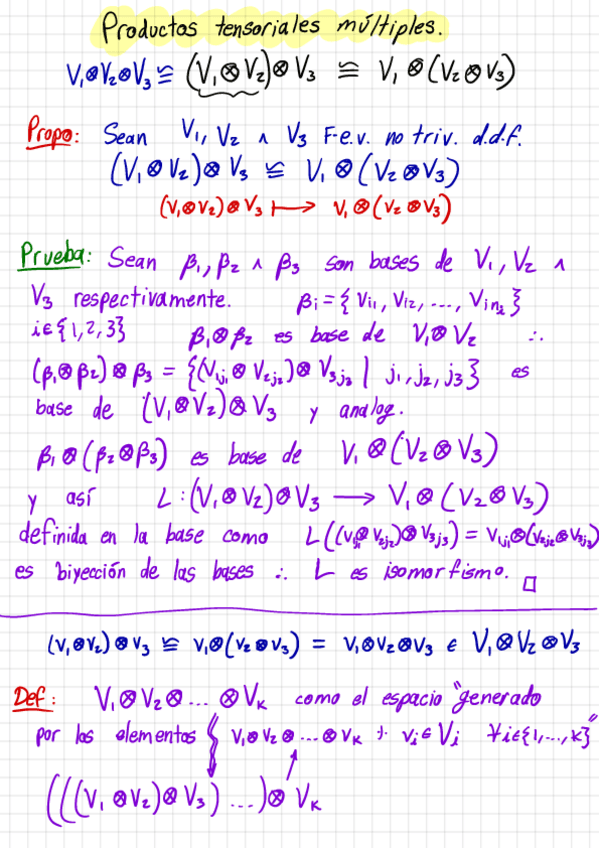 Productos tensoriales múltiples.
V₁⊗V₂⊗V₃ ≅ (V₁⊗V₂)⊗V₃ ≅ V₁⊗(V₂⊗V₃)
Propo: Sean V₁, V₂ ∧ V₃ F-e.v. no triv. d.d.f.
(V₁⊗V₂)⊗V₃ ≅ V₁⊗(V₂⊗V₃)
(v₁⊗v₂)⊗v₃ ↦ v₁⊗(v₂⊗v₃)
Prueba: Sean β₁, β₂ ∧ β₃ son bases de V₁, V₂ ∧
V₃ respectivamente. βᵢ = {vᵢ₁, vᵢ₂, ..., v_{in_i}}
i∈{1,2,3} β₁⊗β₂ es base de V₁⊗V₂ ∴
(β₁⊗β₂)⊗β₃ = {(v_{1j₁}⊗v_{2j₂})⊗v_{3j₃} | j₁, j₂, j₃} es
base de (V₁⊗V₂)⊗V₃ y analog.
β₁⊗(β₂⊗β₃) es base de V₁⊗(V₂⊗V₃)
y así L:(V₁⊗V₂)⊗V₃ ⟶ V₁⊗(V₂⊗V₃)
definida en la base como L((v_{1j₁}⊗v_{2j₂})⊗v_{3j₃}) = v_{1j₁}⊗(v_{2j₂}⊗v_{3j₃})
es biyección de las bases ∴ L es isomorfismo. □
(v₁⊗v₂)⊗v₃ ≅ v₁⊗(v₂⊗v₃) = v₁⊗v₂⊗v₃ ∈ V₁⊗V₂⊗V₃
Def: V₁⊗V₂⊗...⊗Vₖ como el espacio "generado
por los elementos v₁⊗v₂⊗...⊗vₖ + vᵢ∈Vᵢ ∀i∈{1,...,k}"
(((V₁⊗V₂)⊗V₃)...)⊗Vₖ